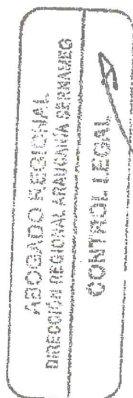 ABOGADO REGIONAL
DIRECCIÓN REGIONAL ARAUCANIA SERNAMEG
CONTROL LEGAL